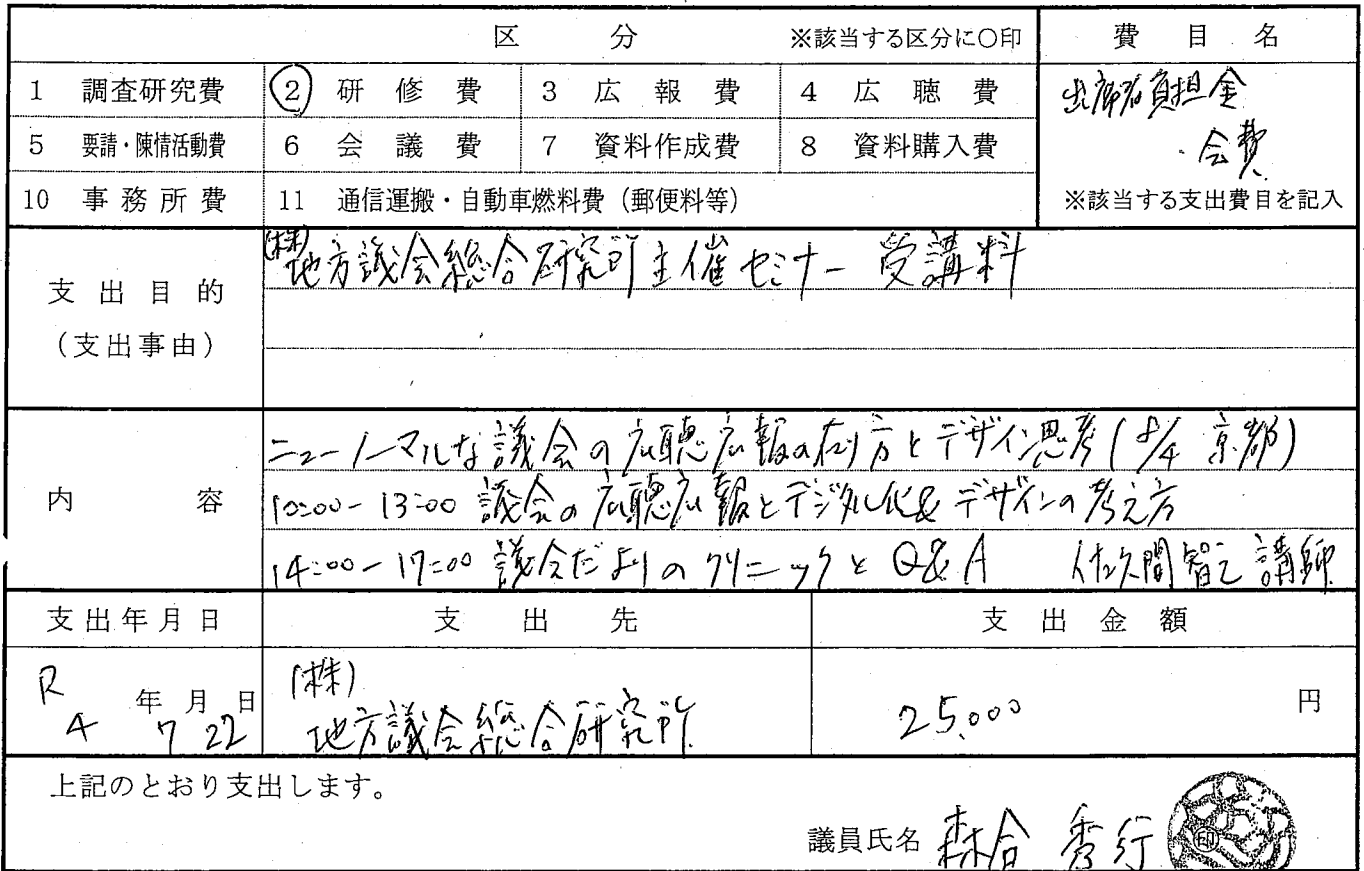 区 分 ※該当する区分に○印 費 目 名
1 調査研究費 ② 研 修 費 3 広 報 費 4 広 聴 費 出席者負担金
5 要請・陳情活動費 6 会 議 費 7 資料作成費 8 資料購入費 ・会費
10 事 務 所 費 11 通信運搬・自動車燃料費（郵便料等） ※該当する支出費目を記入
支 出 目 的
（支出事由）
(株)地方議会総合研究所主催セミナー 受講料
内 容
ニューノーマルな議会の広聴広報の在り方とデザイン思考(8/4 京都)
10:00-13:00 議会の広聴広報とデジタル化&デザインの考え方
14:00-17:00 議会だよりのクリニックとQ&A 佐久間智之講師
支出年月日 支 出 先 支 出 金 額
R4年7月22日 (株)地方議会総合研究所 25,000 円
上記のとおり支出します。
議員氏名 森合 秀行 印